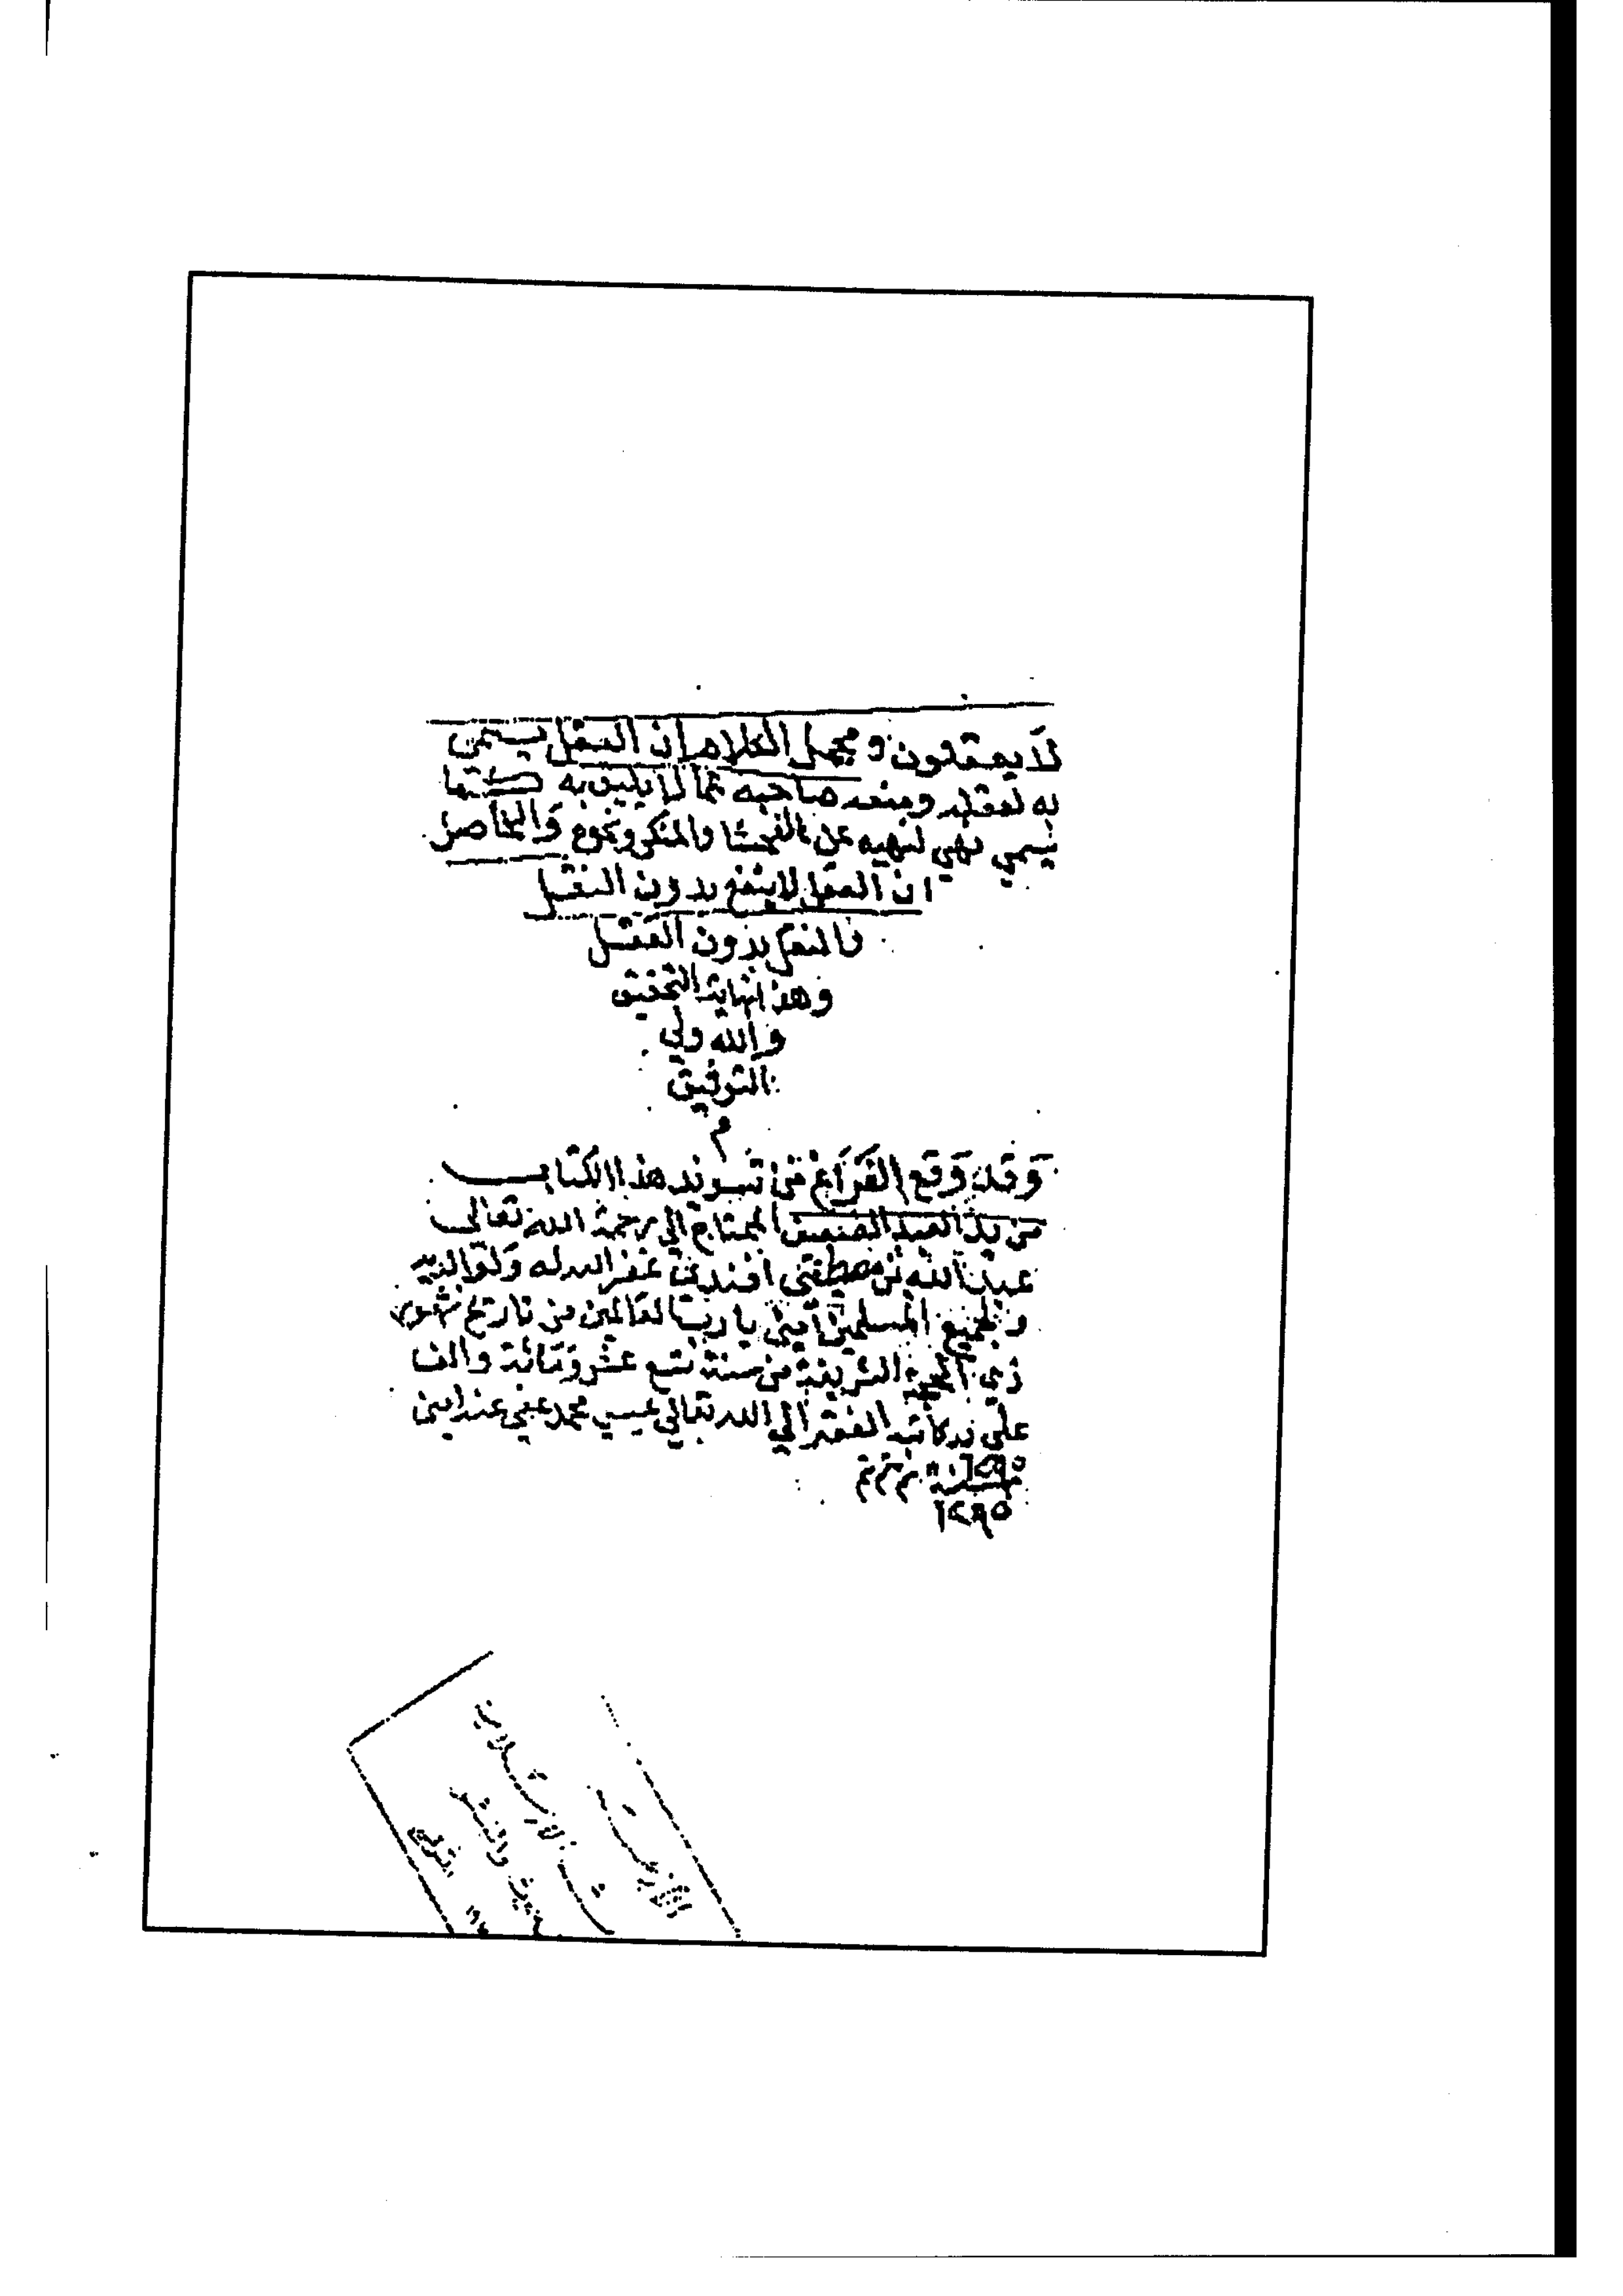 لا يعقلون ومجمل الكلام ان العقل يسمى
به لعقله ومنعه صاحبه عما لا يليق به كما
يسمي نهي لنهيه عن الفحشا والمنكر ونحوه والحاصل
ان العقل لا ينفع بدون النقل
والنقل بدون العقل
وهذا نهاية التحقيق
والله ولي
التوفيق
م
وقد وقع الفراغ من تسويد هذا الكتاب
من يد العبد الضعيف المحتاج الي رحمة الله تعالي
عبد الله بن مصطفى افندي غفر الله له ولوالديه
ولجميع المسلمين آمين يا رب العالمين من تاريخ شهر
ذي الحجة الشريفة من سنة تسع عشر ومائة والف
علي يد كاتبه الفقير الي الله تعالي عيسي محمد عفي عنه امين
١٢٩٥ تم تم تم
١٢٩٥